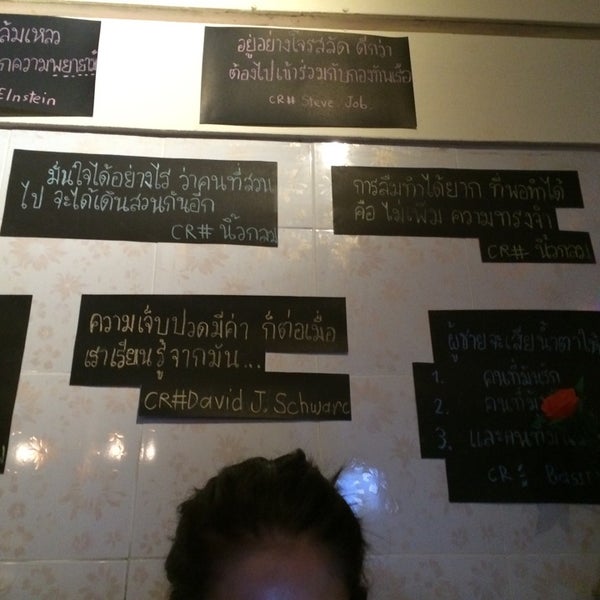 ล้มเหลว
กความพยายาม
EInstein
อยู่อย่างโจรสลัด ดีกว่า
ต้องไปเข้าร่วมกับกองทัพเรือ
CR# Steve Job.
มั่นใจได้อย่างไร ว่าคนที่สวน
ไป จะได้เดินสวนกันอีก
CR# นิ้วกลม
การลืมทำได้ยาก ที่พอทำได้
คือ ไม่เพิ่ม ความทรงจำ
CR# นิ้วกลม
ความเจ็บปวดมีค่า ก็ต่อเมื่อ
เราเรียนรู้จากมัน...
CR#David J. Schwarc
ผู้ชายจะเสียน้ำตาให้
1. คนที่มันรัก
2. คนที่มั
3. และคนที่มั
CR#